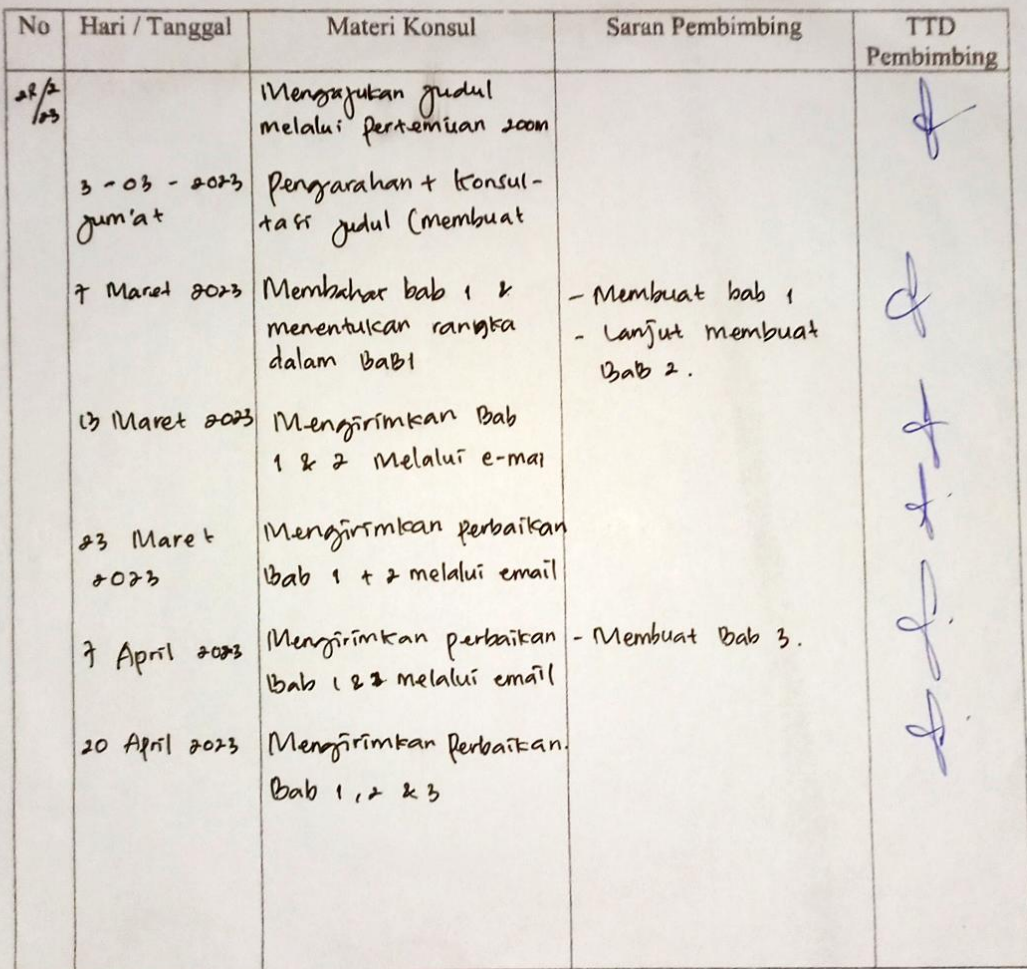 No Hari / Tanggal Materi Konsul Saran Pembimbing TTD
Pembimbing
28/2
/23
Mengajukan judul
melalui Pertemuan zoom
3 - 03 - 2023 Pengarahan + Konsul-
Jum'at tasi judul (membuat
7 Maret 2023 Membahas bab 1 & - Membuat bab 1
menentukan rangka - Lanjut membuat
dalam BaB1 BaB 2.
13 Maret 2023 Mengirimkan Bab
1 & 2 Melalui e-mai
23 Maret Mengirimkan perbaikan
2023 Bab 1 + 2 melalui email
7 April 2023 Mengirimkan perbaikan - Membuat Bab 3.
Bab 1 & 2 melalui email
20 April 2023 Mengirimkan Perbaikan.
Bab 1, 2 & 3